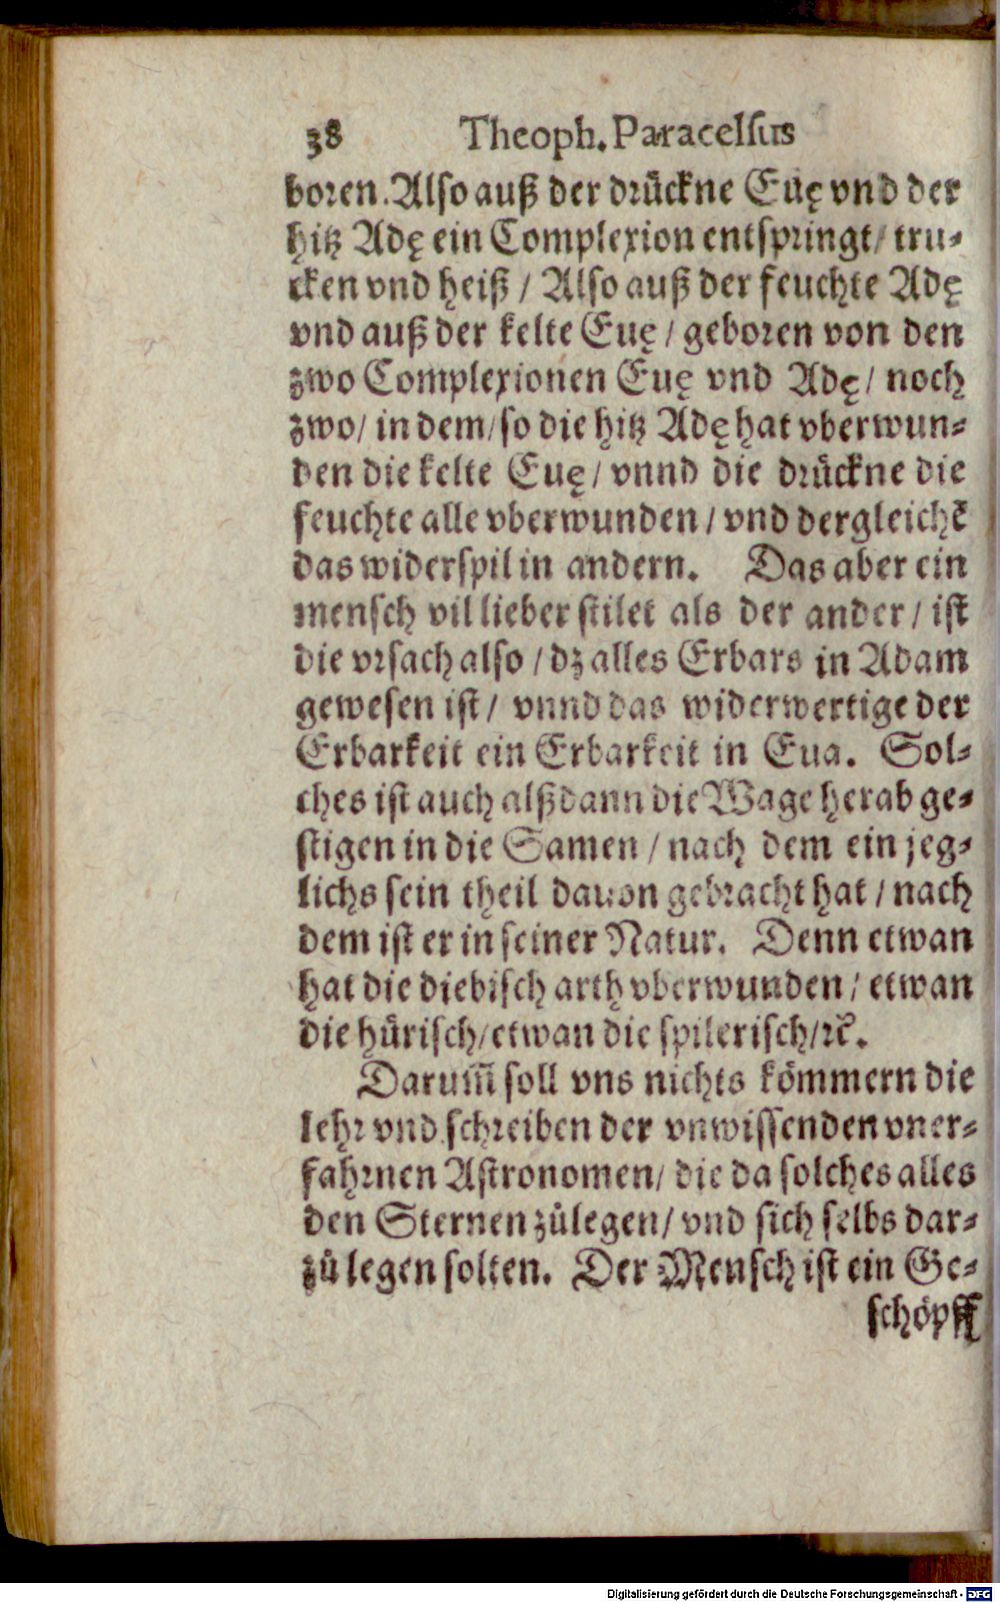 38 Theoph. Paracelſus
boren. Alſo auß der drückne Euę vnd der
hitz Adę ein Complexion entſpringt/ tru⸗
cken vnd heiß / Alſo auß der feuchte Adę
vnd auß der kelte Euę / geboren von den
zwo Complexionen Euę vnd Adę/ noch
zwo/ in dem/ ſo die hitz Adę hat vberwun⸗
den die kelte Euę / vnnd die drückne die
feuchte alle vberwunden / vnd dergleichē
das widerſpil in andern. Das aber ein
menſch vil lieber ſtilet als der ander / iſt
die vrſach alſo / dz alles Erbars in Adam
geweſen iſt / vnnd das widerwertige der
Erbarkeit ein Erbarkeit in Eua. Sol⸗
ches iſt auch alßdann die Wage herab ge⸗
ſtigen in die Samen / nach dem ein jeg⸗
lichs ſein theil dauon gebracht hat / nach
dem iſt er in ſeiner Natur. Denn etwan
hat die diebiſch arth vberwunden / etwan
die hüriſch/ etwan die ſpileriſch/ ꝛc̄.
Darum̄ ſoll vns nichts kömmern die
lehr vnd ſchreiben der vnwiſſenden vner⸗
fahrnen Aſtronomen/ die da ſolches alles
den Sternen zůlegen/ vnd ſich ſelbs dar⸗
zů legen ſolten. Der Menſch iſt ein Ge⸗
ſchöpff
Digitalisierung gefördert durch die Deutsche Forschungsgemeinschaft - DFG